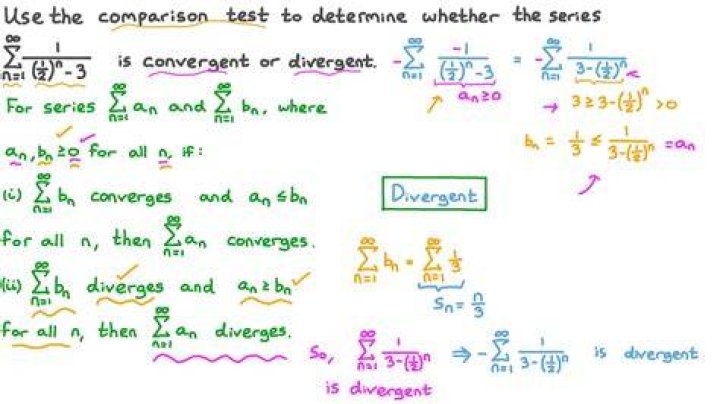 Use the comparison test to determine whether the series
∞∑n=1 1/((1/2)^n - 3) is convergent or divergent.
-∞∑n=1 -1/((1/2)^n - 3) = -∞∑n=1 1/(3-(1/2)^n)
a_n ≥ 0
→ 3 ≥ 3-(1/2)^n > 0
b_n = 1/3 ≤ 1/(3-(1/2)^n) = a_n
For series ∞∑n=1 a_n and ∞∑n=1 b_n, where
a_n, b_n ≥ 0 for all n, if:
(i) ∞∑n=1 b_n converges and a_n ≤ b_n
for all n, then ∞∑n=1 a_n converges.
(ii) ∞∑n=1 b_n diverges and a_n ≥ b_n
for all n, then ∞∑n=1 a_n diverges.
Divergent
∞∑n=1 b_n = ∞∑n=1 1/3
S_n = n/3
So, ∞∑n=1 1/(3-(1/2)^n) ⇒ -∞∑n=1 1/(3-(1/2)^n) is divergent
is divergent